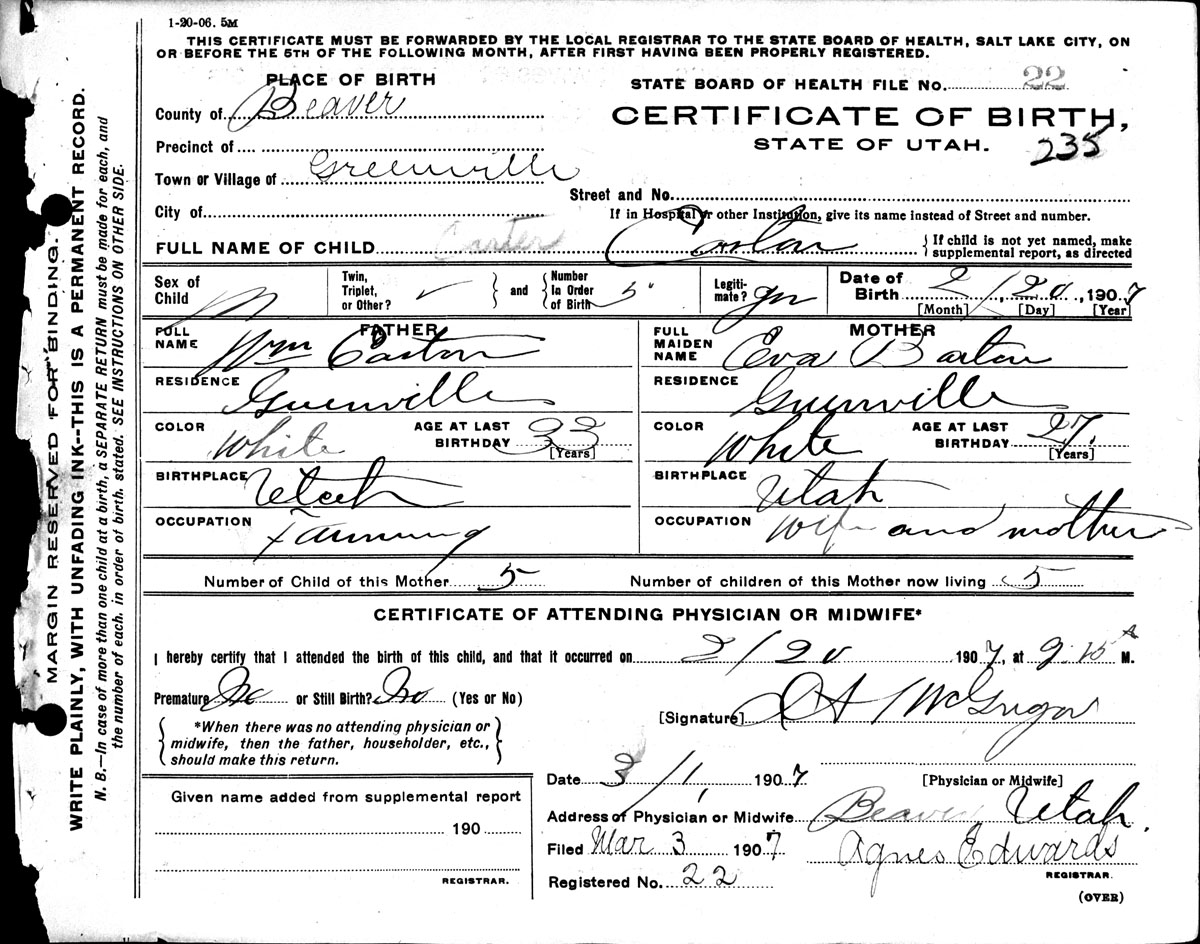 1-20-06. 5M
THIS CERTIFICATE MUST BE FORWARDED BY THE LOCAL REGISTRAR TO THE STATE BOARD OF HEALTH, SALT LAKE CITY, ON
OR BEFORE THE 5TH OF THE FOLLOWING MONTH, AFTER FIRST HAVING BEEN PROPERLY REGISTERED.
PLACE OF BIRTH
STATE BOARD OF HEALTH FILE No. 22
County of Beaver
CERTIFICATE OF BIRTH,
Precinct of
STATE OF UTAH. 235
Town or Village of Greenville
Street and No.
City of
If in Hospital or other Institution, give its name instead of Street and number.
FULL NAME OF CHILD Carter
{ If child is not yet named, make
supplemental report, as directed
Sex of Child M
Twin, Triplet, or Other? ✓ } and { Number In Order of Birth 5
Legitimate?
Date of Birth 2/20, 1907
[Month] [Day] [Year]
FATHER
FULL NAME Wm
MOTHER
FULL MAIDEN NAME Eva Barton
RESIDENCE Greenville
RESIDENCE Greenville
COLOR White
AGE AT LAST BIRTHDAY 33 [Years]
COLOR White
AGE AT LAST BIRTHDAY 27. [Years]
BIRTHPLACE Utah
BIRTHPLACE Utah
OCCUPATION Farming
OCCUPATION wife and mother
Number of Child of this Mother 5
Number of children of this Mother now living 5
CERTIFICATE OF ATTENDING PHYSICIAN OR MIDWIFE*
I hereby certify that I attended the birth of this child, and that it occurred on 2/20 1907, at 9.15 A M.
Premature No or Still Birth? No (Yes or No)
[Signature] McGregor
{ *When there was no attending physician or
midwife, then the father, householder, etc.,
should make this return. }
Date 3/1, 1907
[Physician or Midwife]
Given name added from supplemental report
Address of Physician or Midwife Beaver Utah.
190
Filed Mar 3 1907
Agnes Edwards
REGISTRAR.
REGISTRAR.
Registered No. 22
(OVER)
MARGIN RESERVED FOR BINDING.
WRITE PLAINLY, WITH UNFADING INK--THIS IS A PERMANENT RECORD.
N. B.—In case of more than one child at a birth, a SEPARATE RETURN must be made for each, and
the number of each. in order of birth. stated. SEE INSTRUCTIONS ON OTHER SIDE.